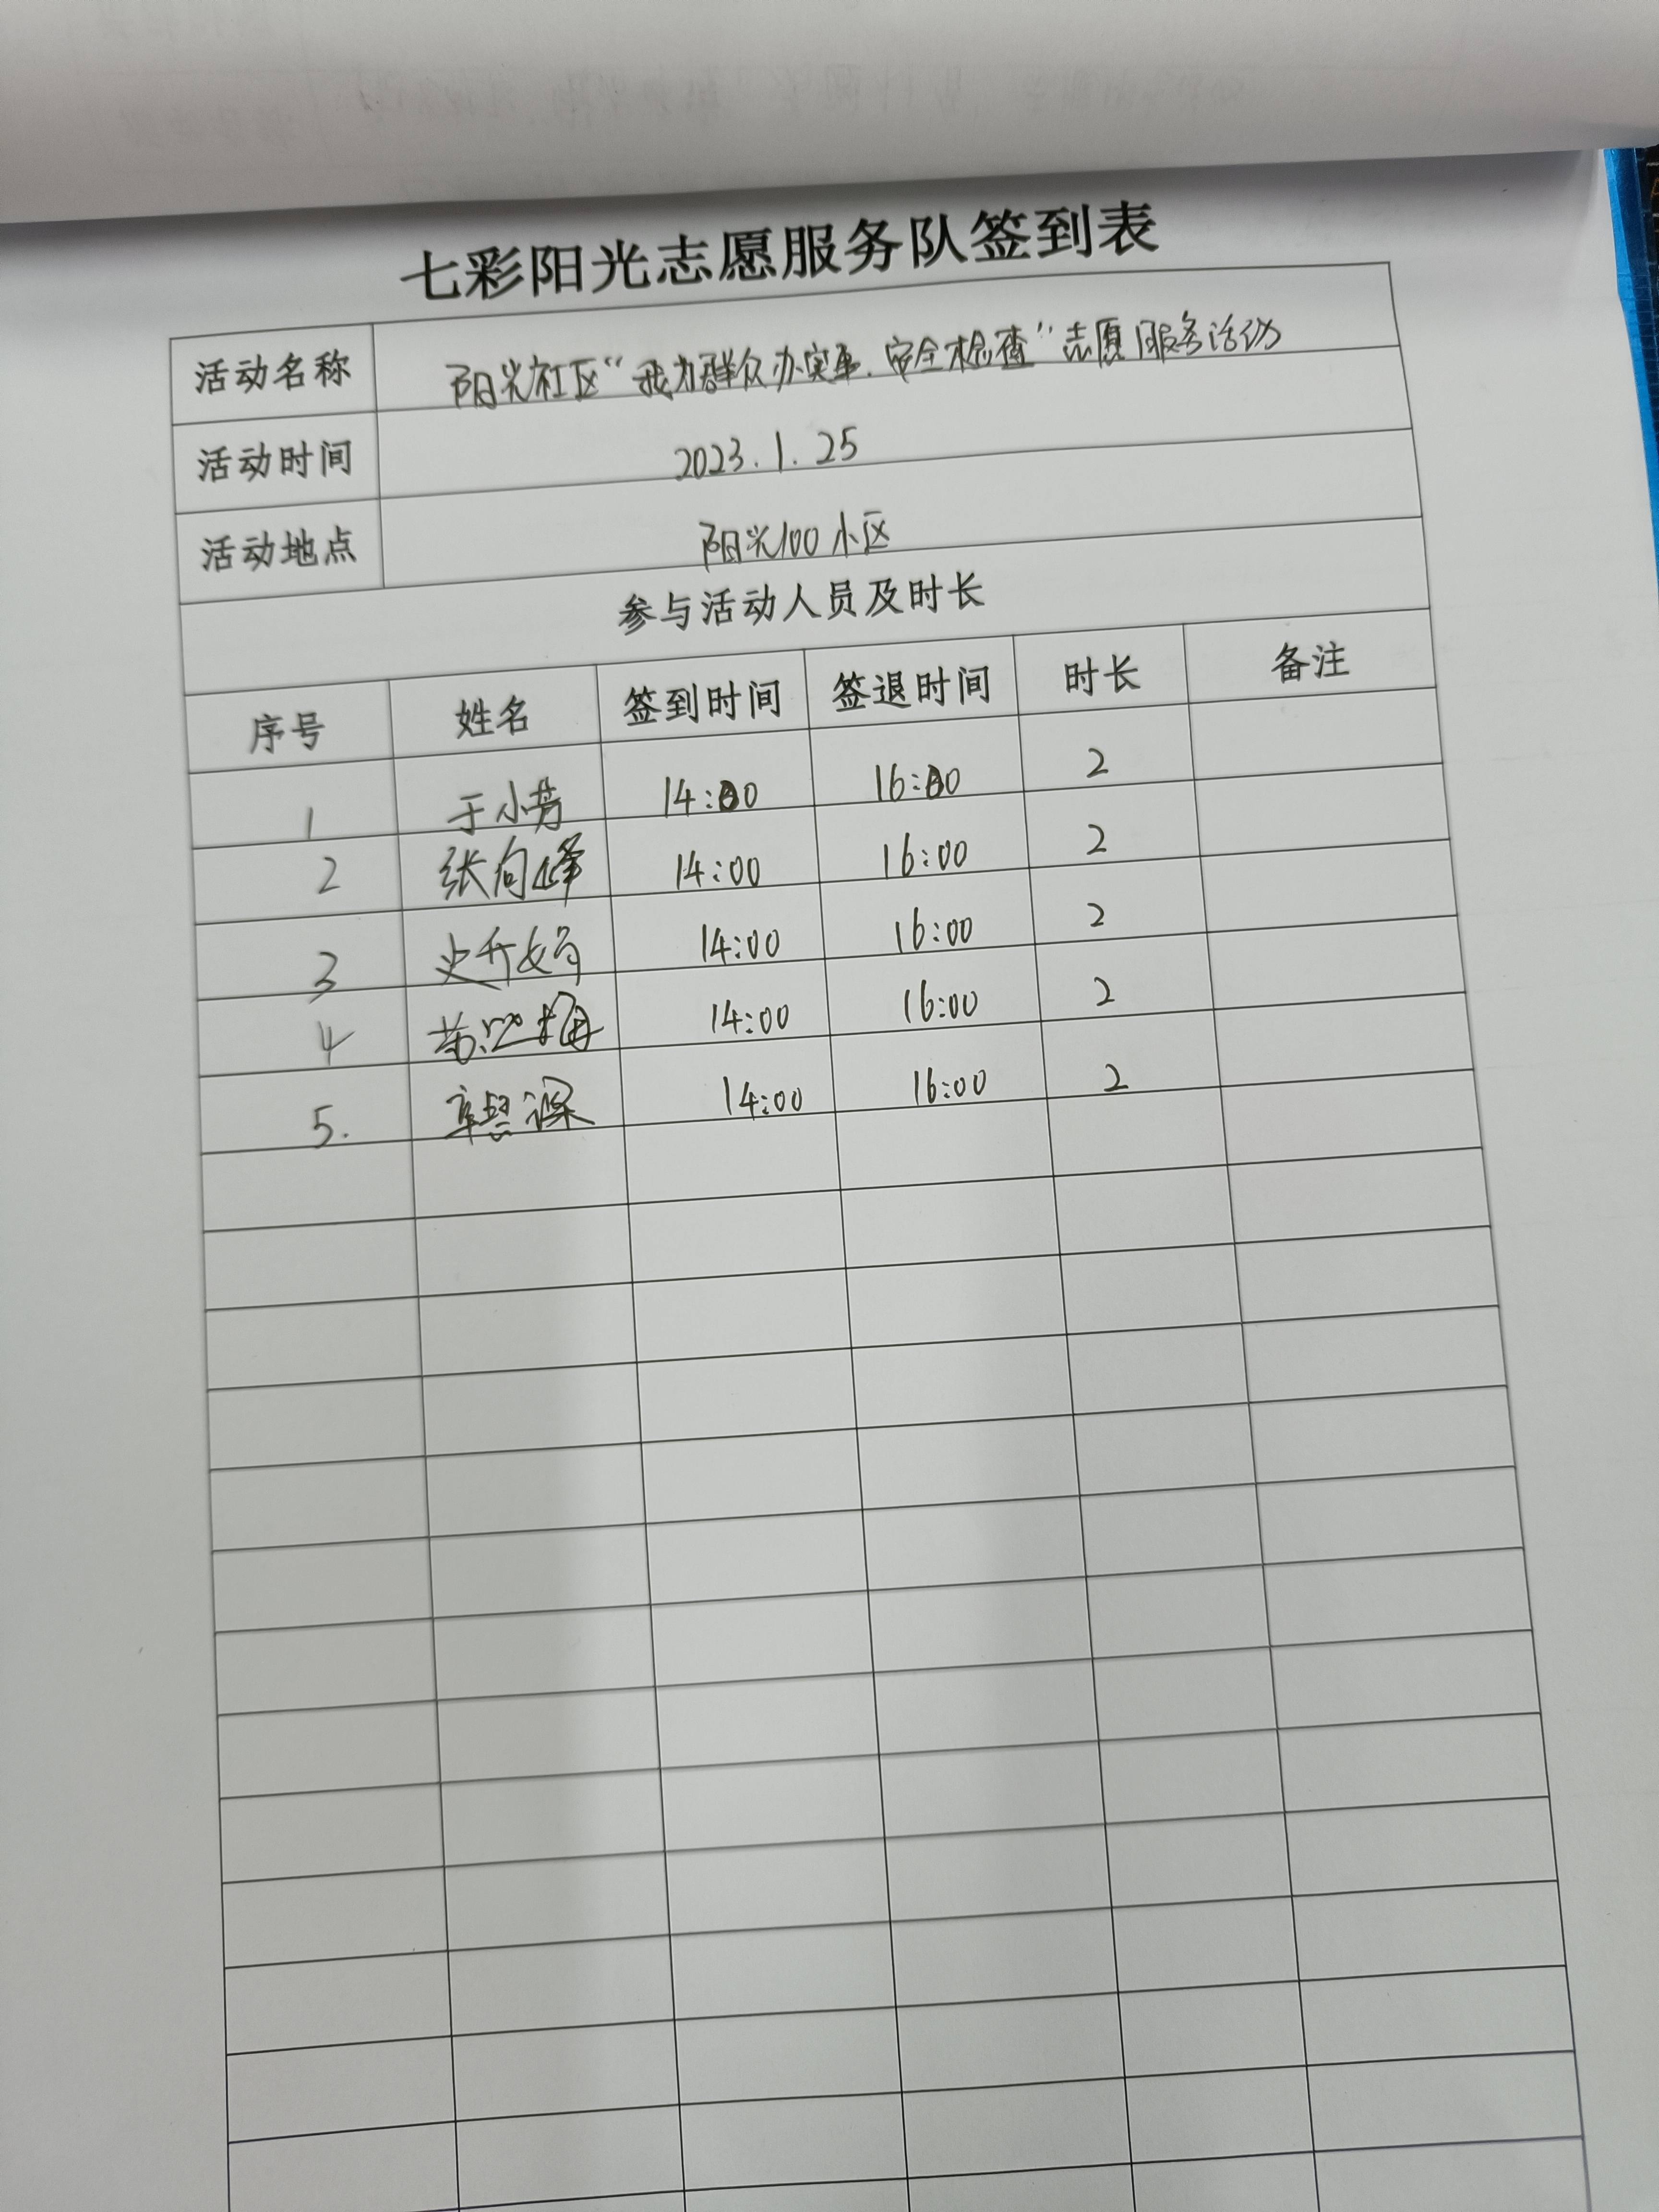 七彩阳光志愿服务队签到表
活动名称 阳光社区“我为群众办实事.安全检查”志愿服务活动
活动时间 2023.1.25
活动地点 阳光100小区
参与活动人员及时长
序号 姓名 签到时间 签退时间 时长 备注
1 于小芳 14:00 16:00 2
2 张向峰 14:00 16:00 2
3 14:00 16:00 2
4 14:00 16:00 2
5. 14:00 16:00 2